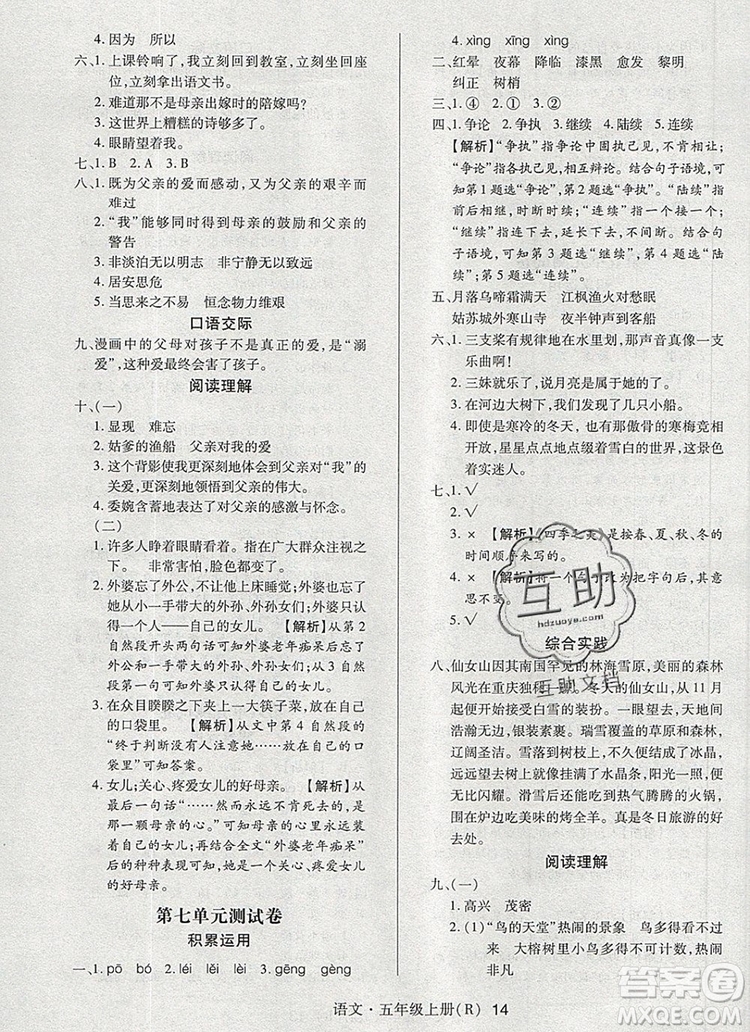 4. 因为　所以
六、1. 上课铃响了，我立刻回到教室，立刻坐在座位上，立刻拿出语文书。
2. 难道那不是母亲出嫁时的陪嫁吗？
3. 这世界上糟糕的诗够多了。
4. 眼睛望着我。
七、1. B　2. A　3. B
八、1. 既为父亲的爱而感动，又为父亲的艰辛而
难过
2. “我”能够同时得到母亲的鼓励和父亲的
警告
3. 非淡泊无以明志　非宁静无以致远
4. 居安思危
5. 当思来之不易　恒念物力维艰
口语交际
九、漫画中的父母对孩子不是真正的爱，是“溺
爱”，这种爱最终会害了孩子。
阅读理解
十、(一)
1. 显现　难忘
2. 姑爹的渔船　父亲对我的爱
3. 这个背影使我更深刻地体会到父亲对“我”的
关爱，更深刻地感受到父亲的伟大。
4. 委婉含蓄地表达了对父亲的感激与怀念。
(二)
1. 许多人睁着眼睛看着。指在广大群众注视之
下。　非常害怕，脸色都变了。
2. 外婆忘了外公，不让他上床睡觉；外婆也忘了
她从小一手带大的外孙、外孙女；外婆只认得
一个人——自己的女儿。　【解析】从第 2
自然段可以找到外婆忘了外公、从小一手带
大的外孙、外孙女，“只认得一个人——自己
的女儿”的表现，从而可知外婆患老年痴呆后
的表现。
3. 在众目睽睽之下夹来一大筷子菜，放在自己
的口袋里。　【解析】从文中第 4 自然段的
“终于干判了一件让我们瞠目结舌的事……口
袋里”可知答案。
4. 女儿;关心、疼爱女儿的好母亲。　【解析】从
最后一句话“……但是她永远不会忘记的，是
那一颗母亲的心。”及前面“外婆老年痴呆”后
的种种表现可知，她是一个关心、疼爱女儿的
好母亲。
第七单元测试卷
积累运用
一、1. pō　bó　2. léi　lěi　lèi　3. gēng　gèng
4. xìng　xīng　xìng
二、红晕　夜幕　降临　漆黑　愈发　黎明
纠正　树梢
三、1. ④　2. ①　3. ②
四、1. 争论　2. 争执　3. 继续　4. 陆续　5. 连续
【解析】“争执”指争论中固执己见，不肯相
让；“争论”指各执己见，相互辩论。结合句子语境，
可知第 1 题选“争论”，第 2 题选“争执”。“陆续”指
前后相继，时断时续；“连续”指一个接一个；
“继续”指连下去，延长下去，不间断。结合句
子语境，可知第 3 题选“继续”，第 4 题选“陆
续”；第 5 题选“连续”。
五、月落乌啼霜满天　江枫渔火对愁眠
姑苏城外寒山寺　夜半钟声到客船
六、1. 三支桨有规律地在水里划，那声音真像一支
乐曲啊！
2. 三妹就乐了，说月亮是属于她的了。
3. 在河边大树下，我们发现了几只小船。
4. 即使是寒冷的冬天，也有那傲骨的寒梅竞相
开放，星星点点地点缀着雪白的世界，美得
着实迷人。
七、1. √
2. √
3. ×　【解析】《四季之美》是按春、夏、秋、冬的
时间顺序来写的。
4. ×　【解析】将一个句子改为把字句后，意思不变。
5. √
综合实践
八、仙女山因其南国罕见的林海雪原，美丽的森林
风光在重庆独树一帜。今天的仙女山，从 11 月
起就有了白雪的装扮。放眼望去，茫茫的森林
浩瀚无边，银装素裹。瑞雪覆盖的草原，宁静
辽阔圣洁。雪落到树枝上，就形成了冰晶，
像给树枝挂上了水晶条，阳光一照，发出一道
道光，闪闪耀眼。滑雪后有热气腾腾的火锅，
围在炉边吃美味的烤全羊。真是冬日旅游的好
去处。
阅读理解
九、(一)
1. 高兴　茂密
2. (1)“鸟的天堂”热闹的景象　鸟多得看不过
来　大榕树里小鸟多得看不过来、热闹
非凡
互助
hdzuoye.com
互助文档
语文·五年级上册(R)　14
答案圈
MXQE.COM